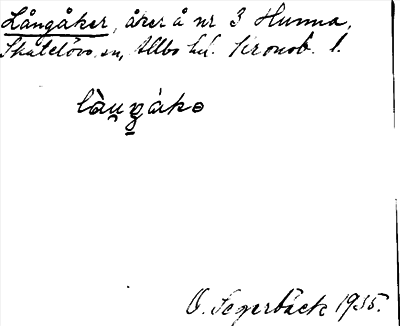 Långåker, åker å nr 3 Hunna,
Skatelövs sn, Allbo hd. Kronob. l.
O. Segerbäck 1935.